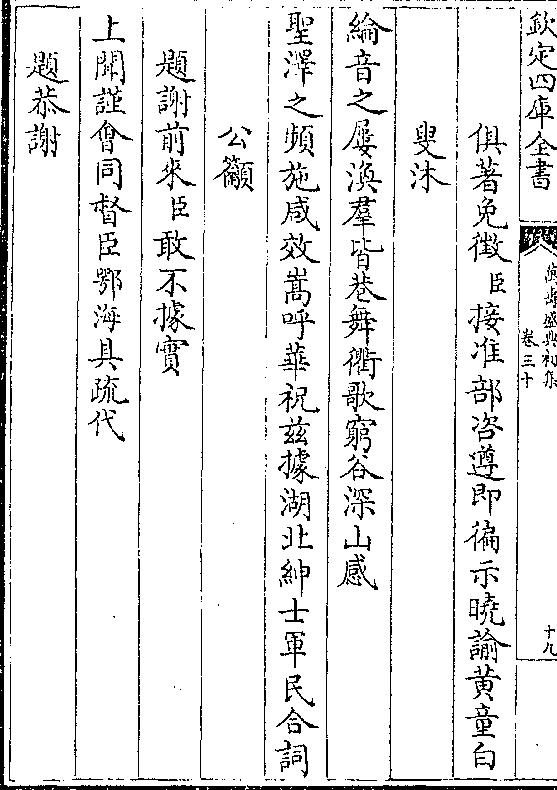 欽定四庫全書
萬壽盛典初集
卷三十
十九
俱著免徵臣接准部咨遵即徧示曉諭黄童白
叟沐
綸音之屢渙羣皆巷舞衢歌窮谷深山感
聖澤之頻施咸效嵩呼華祝兹據湖北紳士軍民合詞
公籲
題謝前來臣敢不據實
上聞謹會同督臣鄂海具疏代
題恭謝